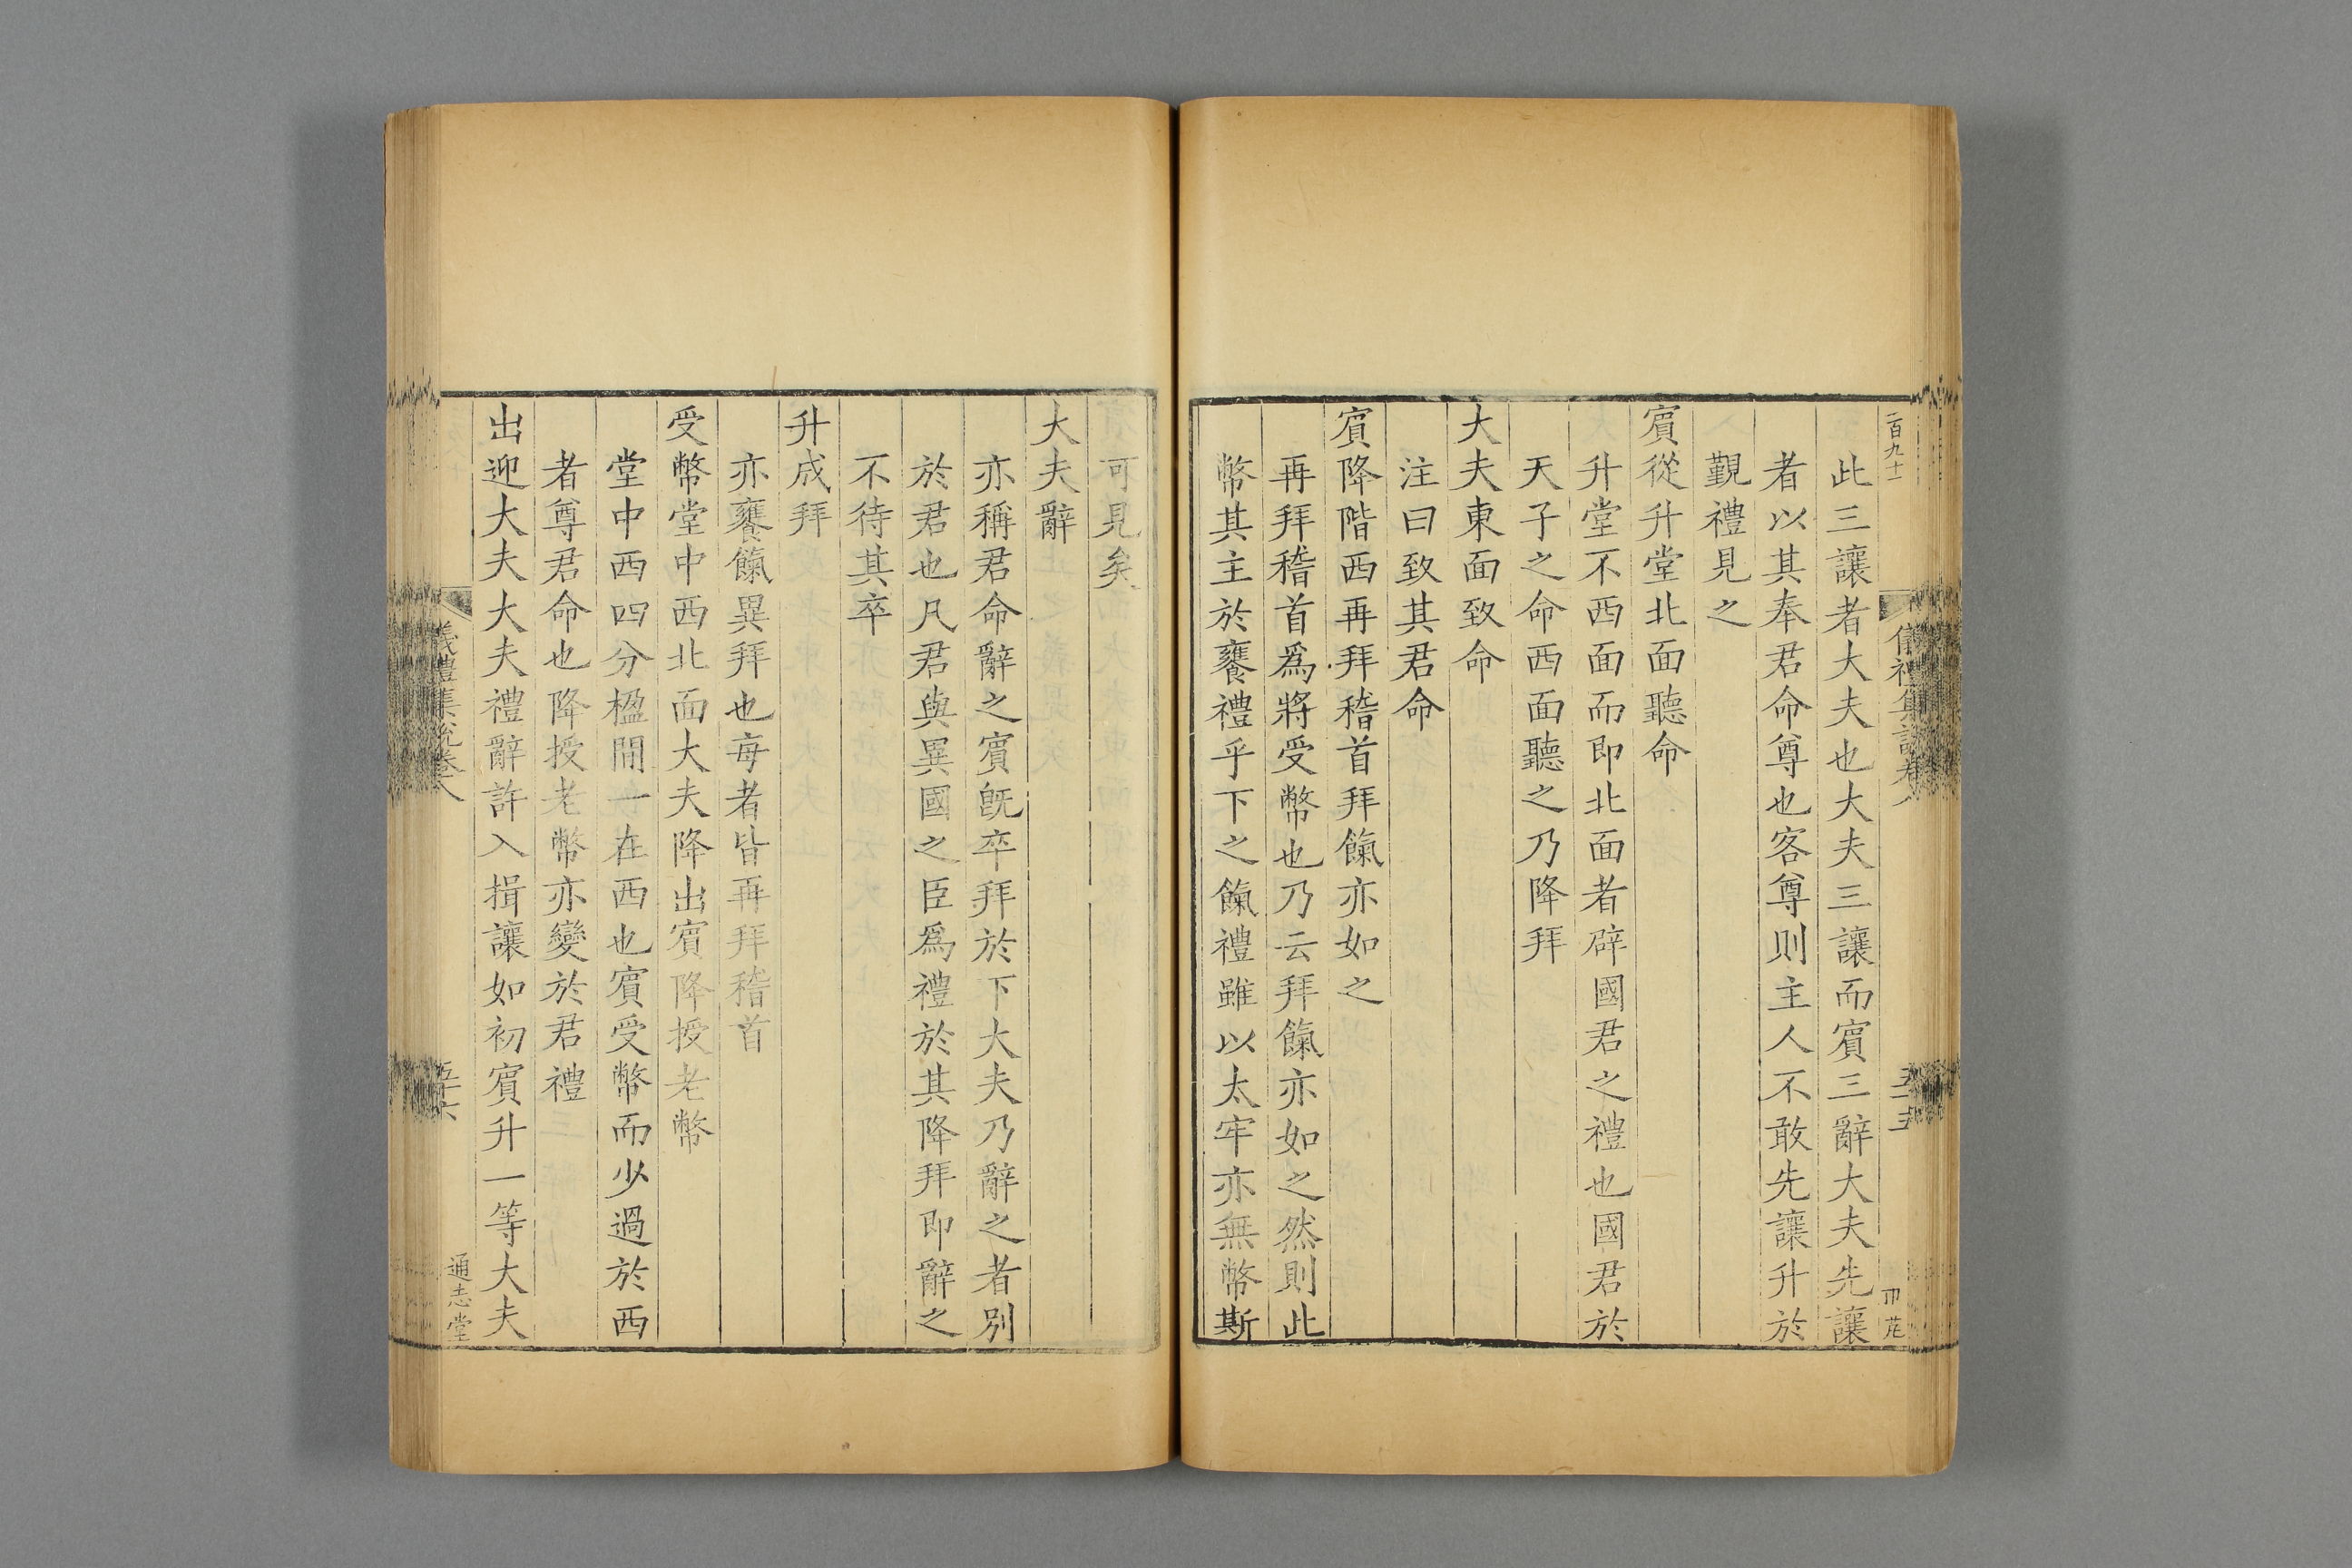 二百九十一
儀禮集說卷八
五十五
此三讓者大夫也大夫三讓而賓三辭大夫先讓
者以其奉君命尊也客尊則主人不敢先讓升於
覲禮見之
賓從升堂北面聽命
升堂不西面而即北面者辟國君之禮也國君於
天子之命西面聽之乃降拜
大夫東面致命
注曰致其君命
賓降階西再拜稽首拜餼亦如之
再拜稽首爲將受幣也乃云拜餼亦如之然則此
幣其主於饔禮乎下之餼禮雖以太牢亦無幣斯
可見矣
大夫辭
亦稱君命辭之賓旣卒拜於下大夫乃辭之者別
於君也凡君與異國之臣爲禮於其降拜即辭之
不待其卒
升成拜
亦饔餼異拜也每者皆再拜稽首
受幣堂中西北面大夫降出賓降授老幣
堂中西四分楹間一在西也賓受幣而少過於西
者尊君命也降授老幣亦變於君禮
出迎大夫大夫禮辭許入揖讓如初賓升一等大夫
儀禮集說卷八
五十六
通志堂